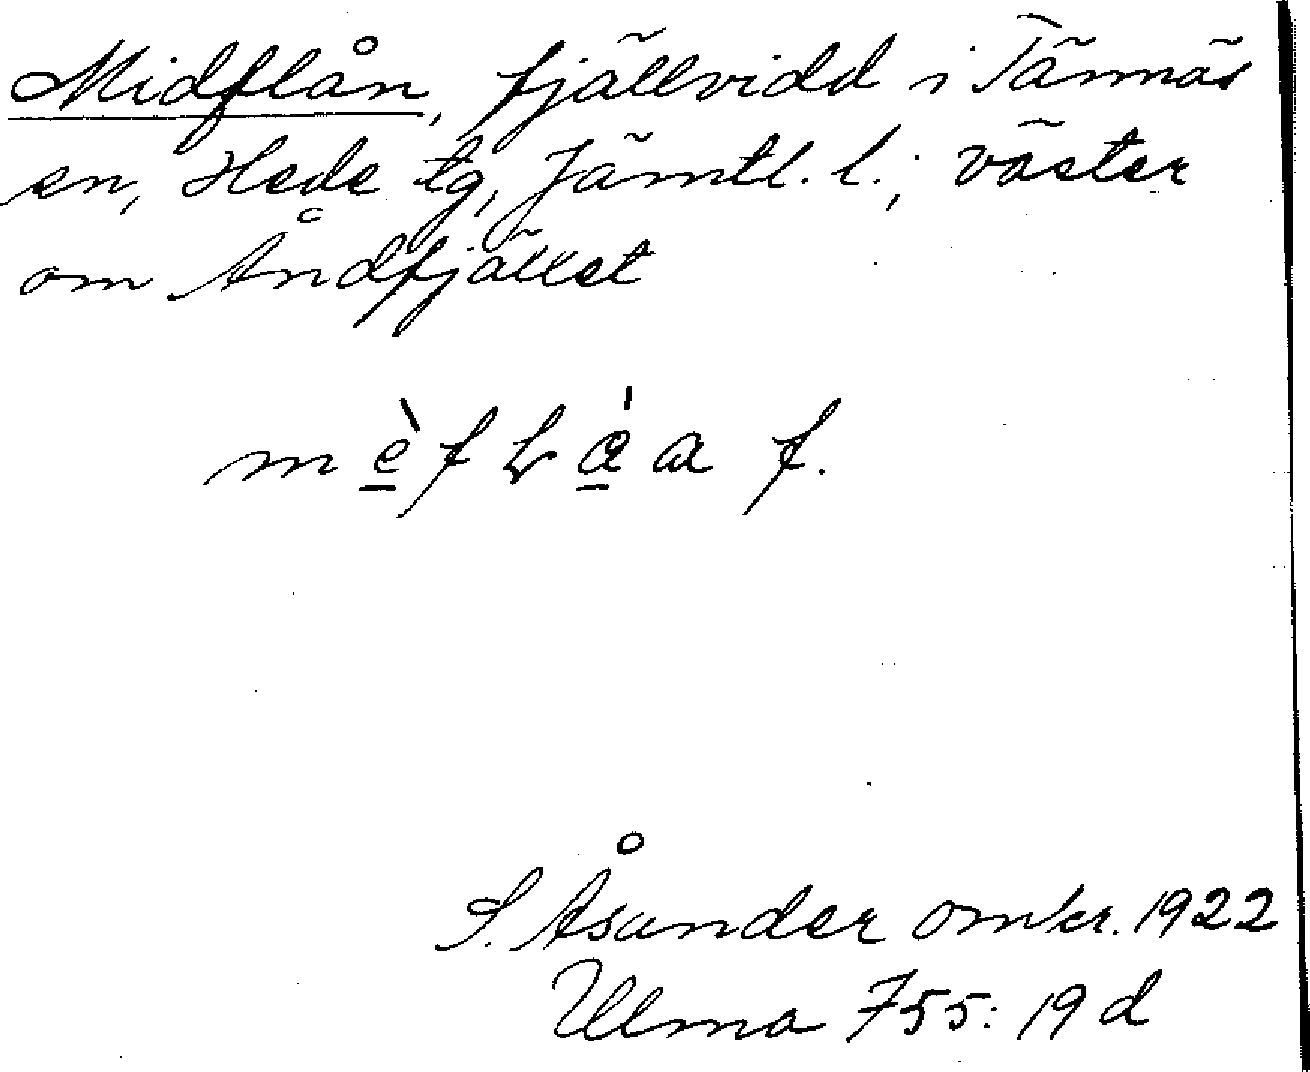 Midflån, fjällvidd i Tännäs
sn, Hede tg, Jämtl. l.; väster
om Åndfjället
f.
S. Åsander omkr. 1922
Ulma 755: 19 d